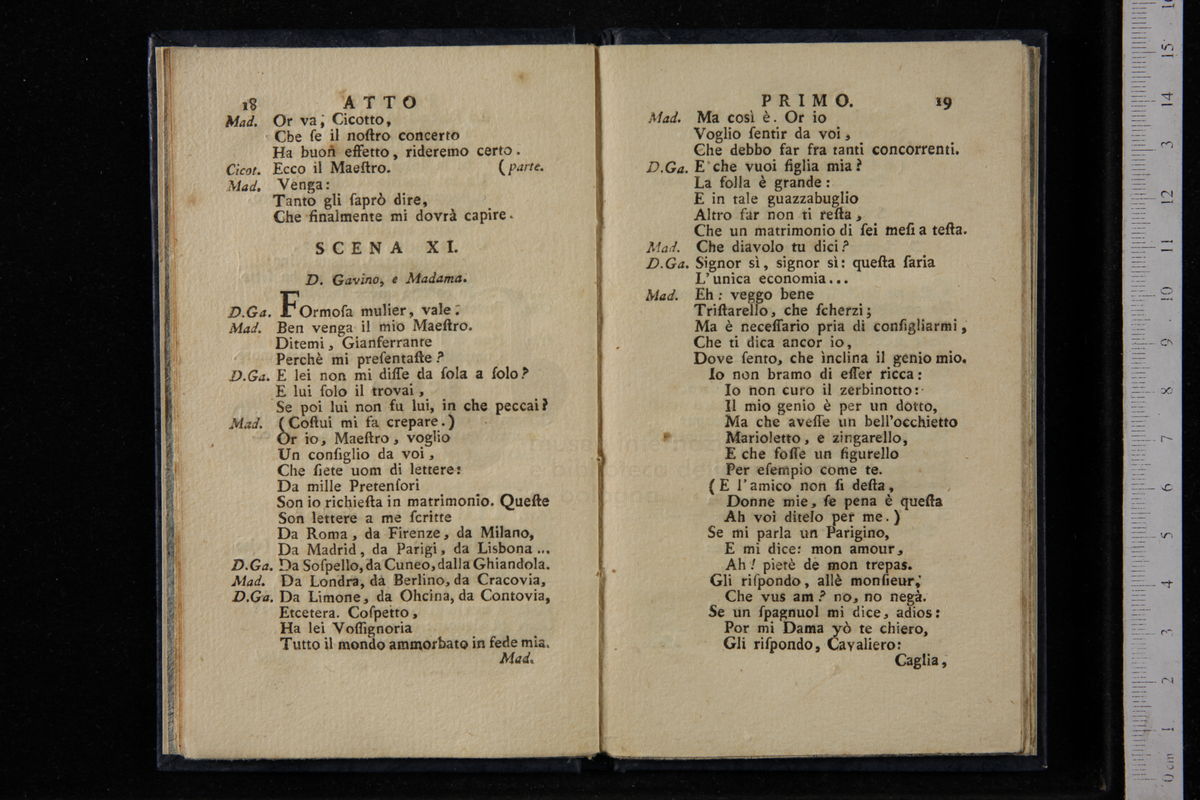 18 ATTO
Mad. Or va, Cicotto,
Che ſe il noſtro concerto
Ha buon effetto, rideremo certo.
Cicot. Ecco il Maeſtro. (parte.
Mad. Venga:
Tanto gli ſaprò dire,
Che finalmente mi dovrà capire.
SCENA XI.
D. Gavino, e Madama.
D.Ga. FOrmoſa mulier, vale.
Mad. Ben venga il mio Maeſtro.
Ditemi, Gianferrante
Perchè mi preſentaſte?
D.Ga. E lei non mi diſſe da ſola a ſolo?
E lui ſolo il trovai,
Se poi lui non fu lui, in che peccai?
Mad. (Coſtui mi fa crepare.)
Or io, Maeſtro, voglio
Un conſiglio da voi,
Che ſiete uom di lettere:
Da mille Pretenſori
Son io richieſta in matrimonio. Queſte
Son lettere a me ſcritte
Da Roma, da Firenze, da Milano,
Da Madrid, da Parigi, da Lisbona...
D.Ga. Da Soſpello, da Cuneo, dalla Ghiandola.
Mad. Da Londra, da Berlino, da Cracovia,
D.Ga. Da Limone, da Ohcina, da Contovia,
Etcetera. Coſpetto,
Ha lei Voſſignoria
Tutto il mondo ammorbato in fede mia.
Mad.
PRIMO. 19
Mad. Ma così è. Or io
Voglio ſentir da voi,
Che debbo far fra tanti concorrenti.
D.Ga. E che vuoi figlia mia?
La folla è grande:
E in tale guazzabuglio
Altro far non ti reſta,
Che un matrimonio di ſei meſi a teſta.
Mad. Che diavolo tu dici?
D.Ga. Signor sì, signor sì: queſta ſaria
L'unica economia...
Mad. Eh: veggo bene
Triſtarello, che ſcherzi;
Ma è neceſſario pria di conſigliarmi,
Che ti dica ancor io,
Dove ſento, che inclina il genio mio.
Io non bramo di eſſer ricca:
Io non curo il zerbinotto:
Il mio genio è per un dotto,
Ma che aveſſe un bell'occhietto
Marioletto, e zingarello,
E che foſſe un figurello
Per eſempio come te.
(E l'amico non ſi deſta,
Donne mie, ſe pena è queſta
Ah voi ditelo per me.)
Se mi parla un Parigino,
E mi dice: mon amour,
Ah! pietè de mon trepas.
Gli riſpondo, allè monſieur,
Che vus am? no, no negà.
Se un ſpagnuol mi dice, adios:
Por mi Dama yò te chiero,
Gli riſpondo, Cavaliero:
Caglia,